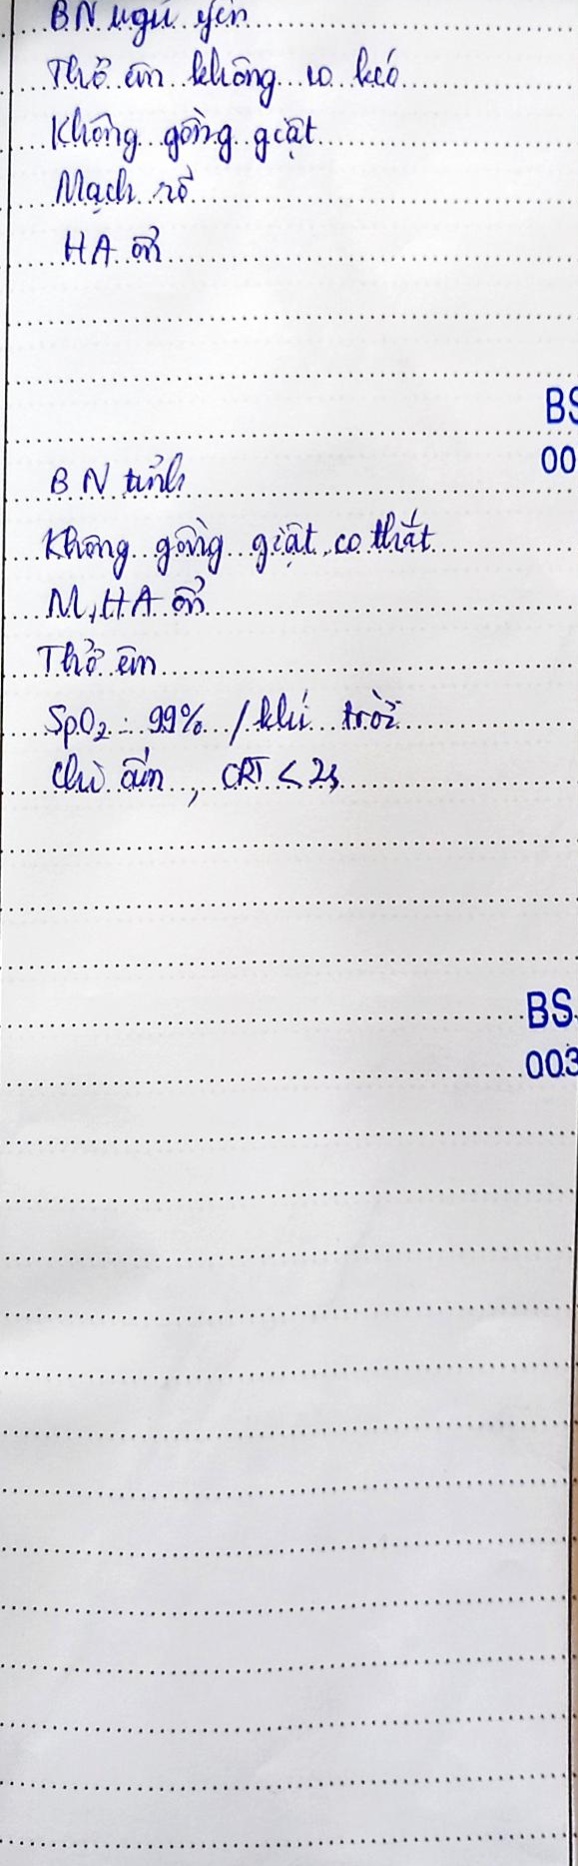 BN ngủ yên
Thở êm không co kéo
Không gồng giật
Mạch rõ
HA ổn
BS
00
BN tỉnh
Không gồng giật, co thắt
M, HA ổn
Thở êm
SpO₂: 99% / khí trời
Chi ấm, CRT < 2s
BS.
003